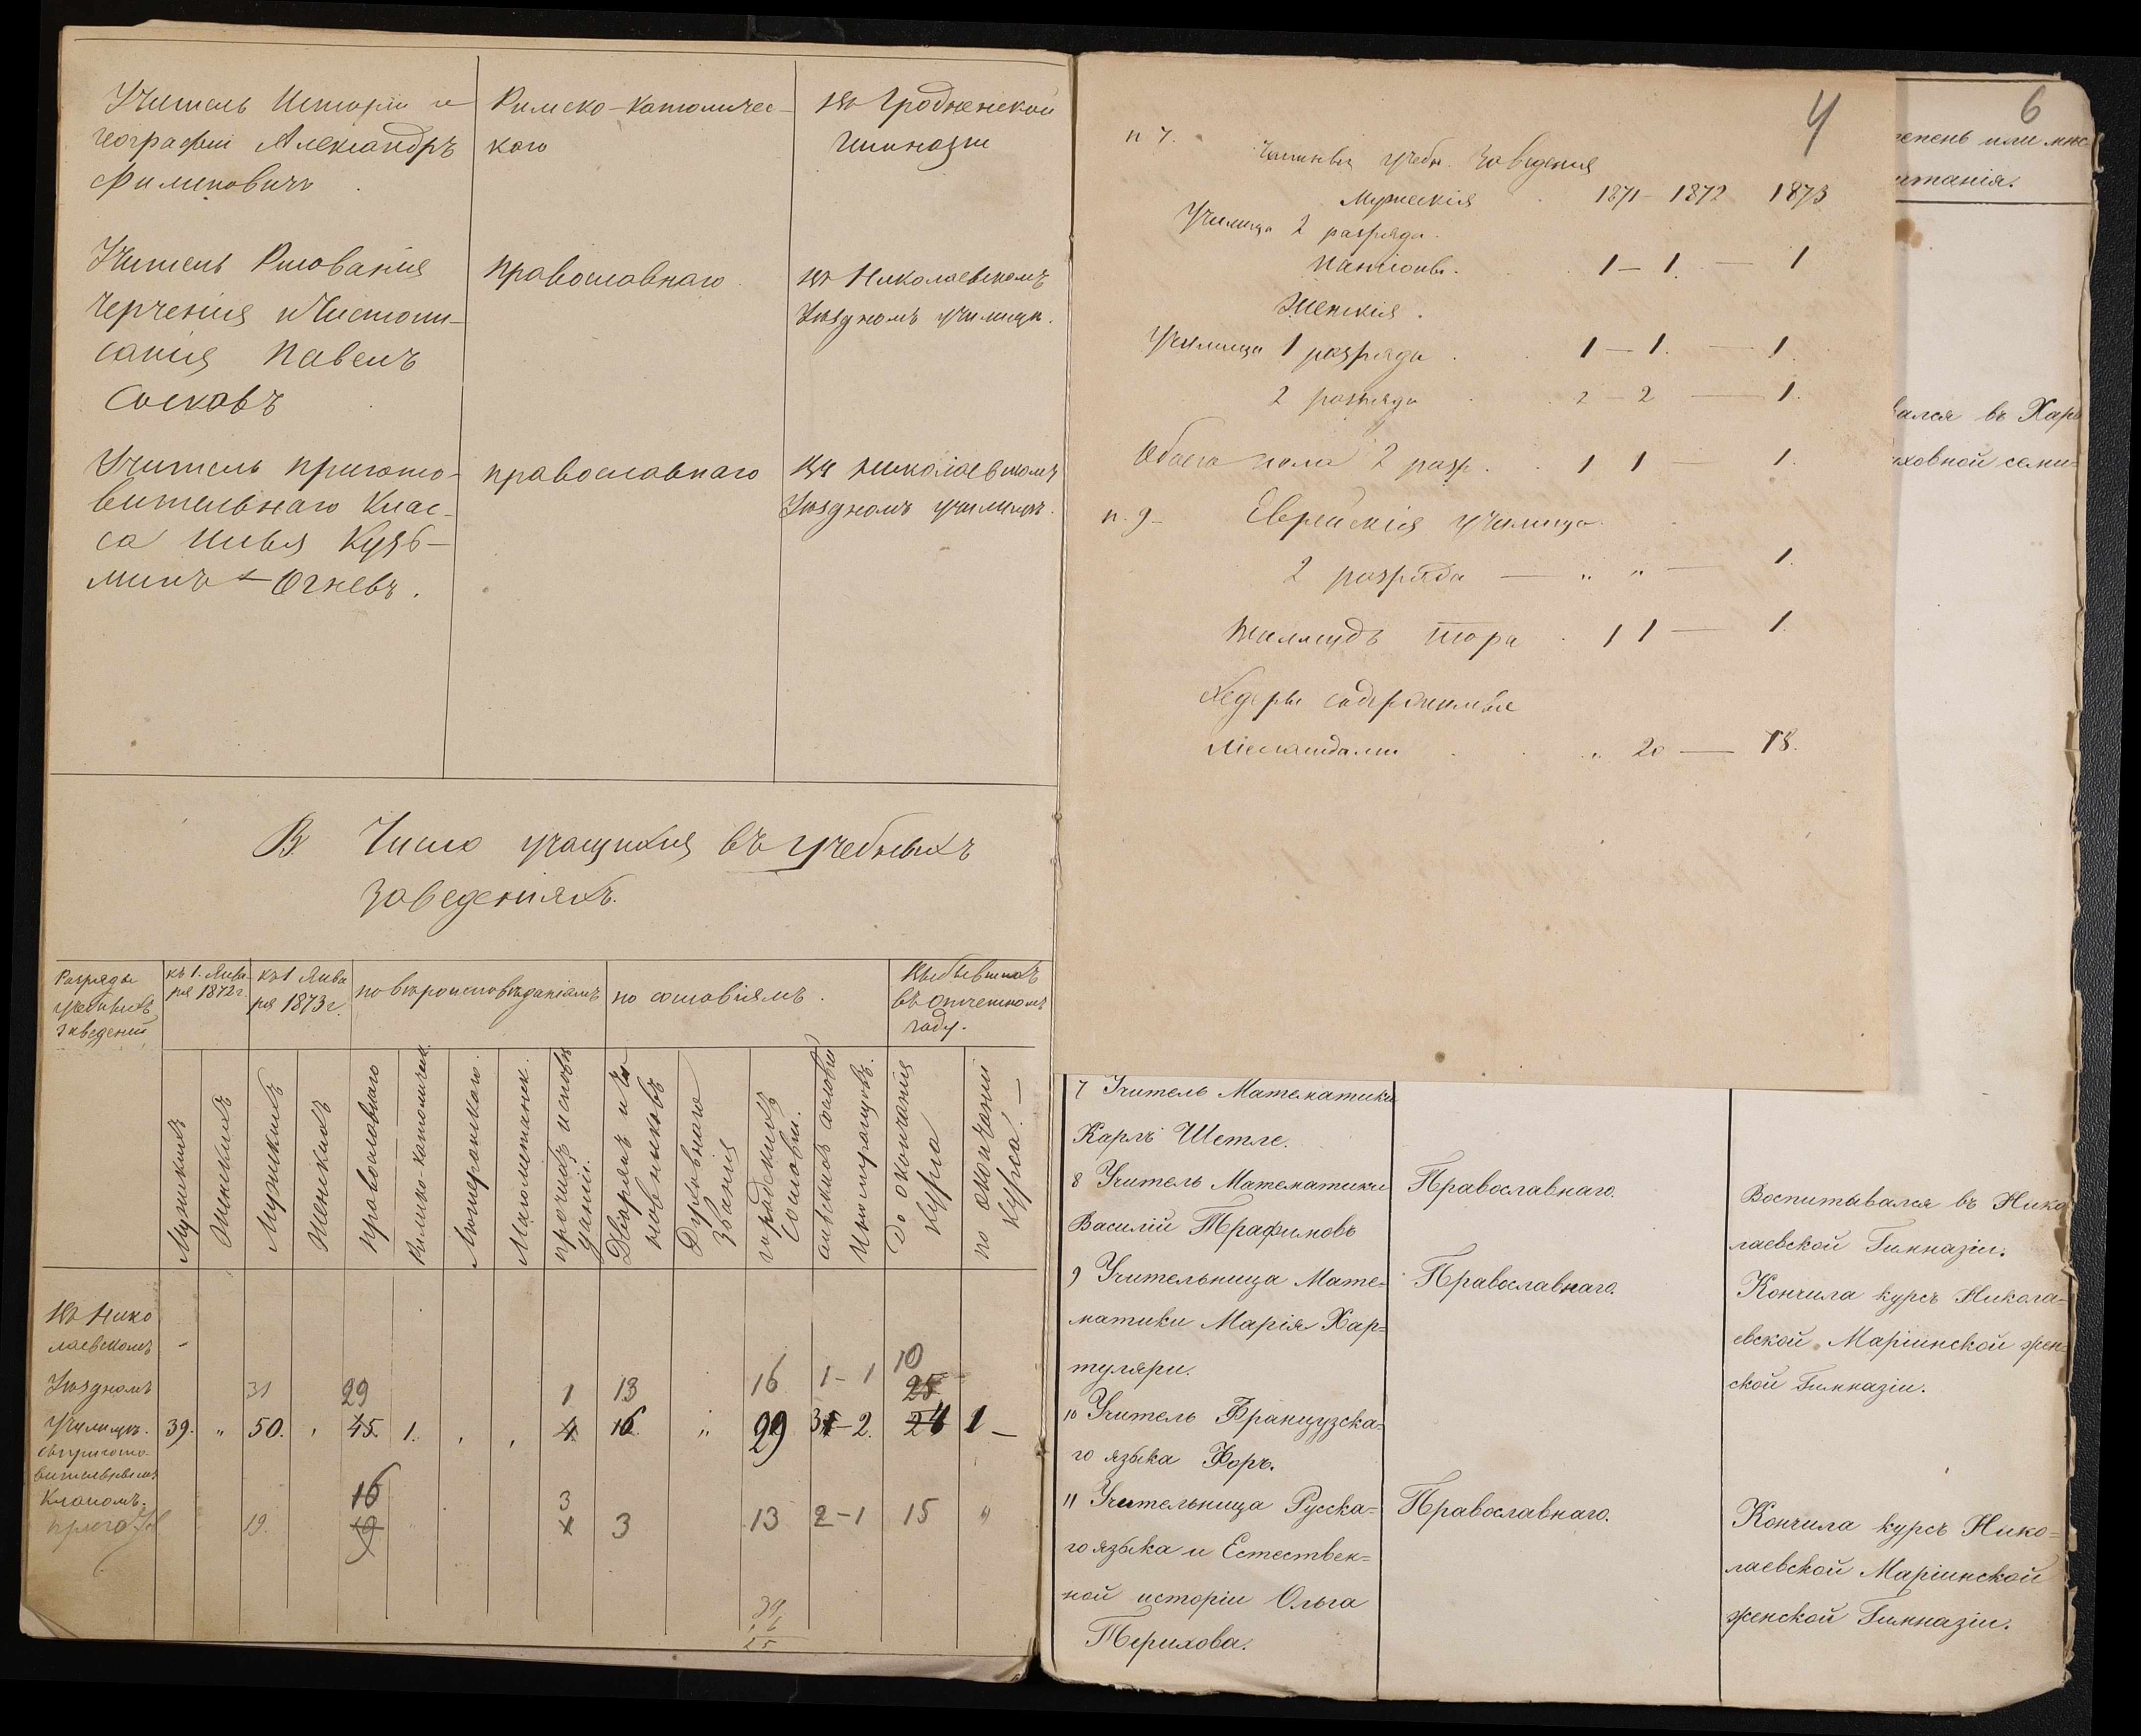 Учитель Исторіи и
географіи Александръ
Филиповичъ
Римско-католичес-
каго
въ Гродненской
Гимназіи
Учитель Рисованія
черченія и Чистопи-
санія Павелъ
Сосковъ
православнаго
въ Николаевскомъ
Уѣздномъ училищѣ.
Учитель пригото-
вительнаго Клас-
са Илья Кузь-
минъ-Огневъ.
православнаго
въ Николаевскомъ
Уѣздномъ училищѣ.
В Число учащихся въ учебныхъ
заведеніяхъ.
Разряды
учебныхъ
заведеній
къ 1. Янва-
ря 1872 г.
къ 1 Янва
ря 1873 г.
по вѣроисповѣданіямъ
по сословіямъ.
Выбывшихъ
въ отчетномъ
году.
Мужскихъ
Женскихъ
Мужскихъ
Женскихъ
православнаго
Римско-католическ.
Лютеранскаго.
Магометанск.
прочихъ исповѣ
даній.
Дворянъ и чи
новниковъ
Духовнаго
званія
городскихъ
сословій.
сельскихъ сословій
Иностранцовъ.
До окончанія
курса
по окончаніи
курса. —
Въ Нико
лаевскомъ
Уѣздномъ 31 29 1 13 16 1-1 10 25
Училищѣ. 39. „ 50. „ 45. 1. „ „ 4. 16. „ 29 3-2. 24 1 —
съ пригото-
вительнымъ
Класомъ. 16 3
19. 19 1 3 13 2-1 15 „
39
16
25
4
п 7. Частныя учебн. заведенія
Мужескія 1871 - 1872 1873
Училища 2 разряда.
Пансіоны. 1 — 1. — 1
Женскія.
Училища 1 разряда. 1 — 1. — 1.
2 разряда 2 — 2 — 1.
Обоего пола 2 разр. 1 1 — 1.
п. 9 - Еврейскія училища.
2 разряда — „ „ — 1.
Талмудъ тора 1 1 — 1.
Хедеры содержимые
Меламдами „ 20 — 18.
6
тепень или мѣс
итанія.
вался въ Харь
уховной семи-
7 Учитель Математики
Карлъ Шетле.
8 Учитель Математики
Василій Трафимовъ
Православнаго.
Воспитывался въ Нико
лаевской Гимназіи.
9 Учительница Мате-
матики Марія Хар-
туляри.
Православнаго.
Кончила курсъ Никола-
евской Маріинской жен-
ской Гимназіи.
10 Учитель Французска-
го языка Форъ.
11 Учительница Русска-
го языка и Естествен-
ной исторіи Ольга
Терихова.
Православнаго.
Кончила курсъ Нико-
лаевской Маріинской
женской Гимназіи.